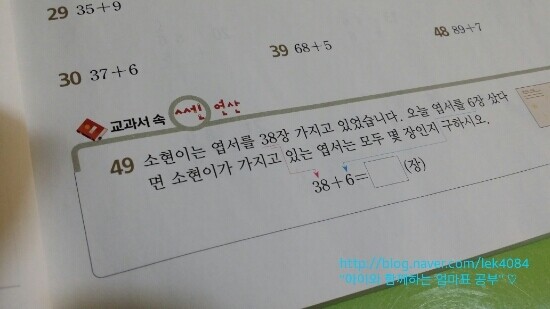 29 35+9
48 89+7
39 68+5
30 37+6
교과서 속 쎈 연산
49 소현이는 엽서를 38장 가지고 있었습니다. 오늘 엽서를 6장 샀다
면 소현이가 가지고 있는 엽서는 모두 몇 장인지 구하시오.
38+6= (장)
http://blog.naver.com/lek4084
"아이와 함께하는 엄마표 공부" ♡